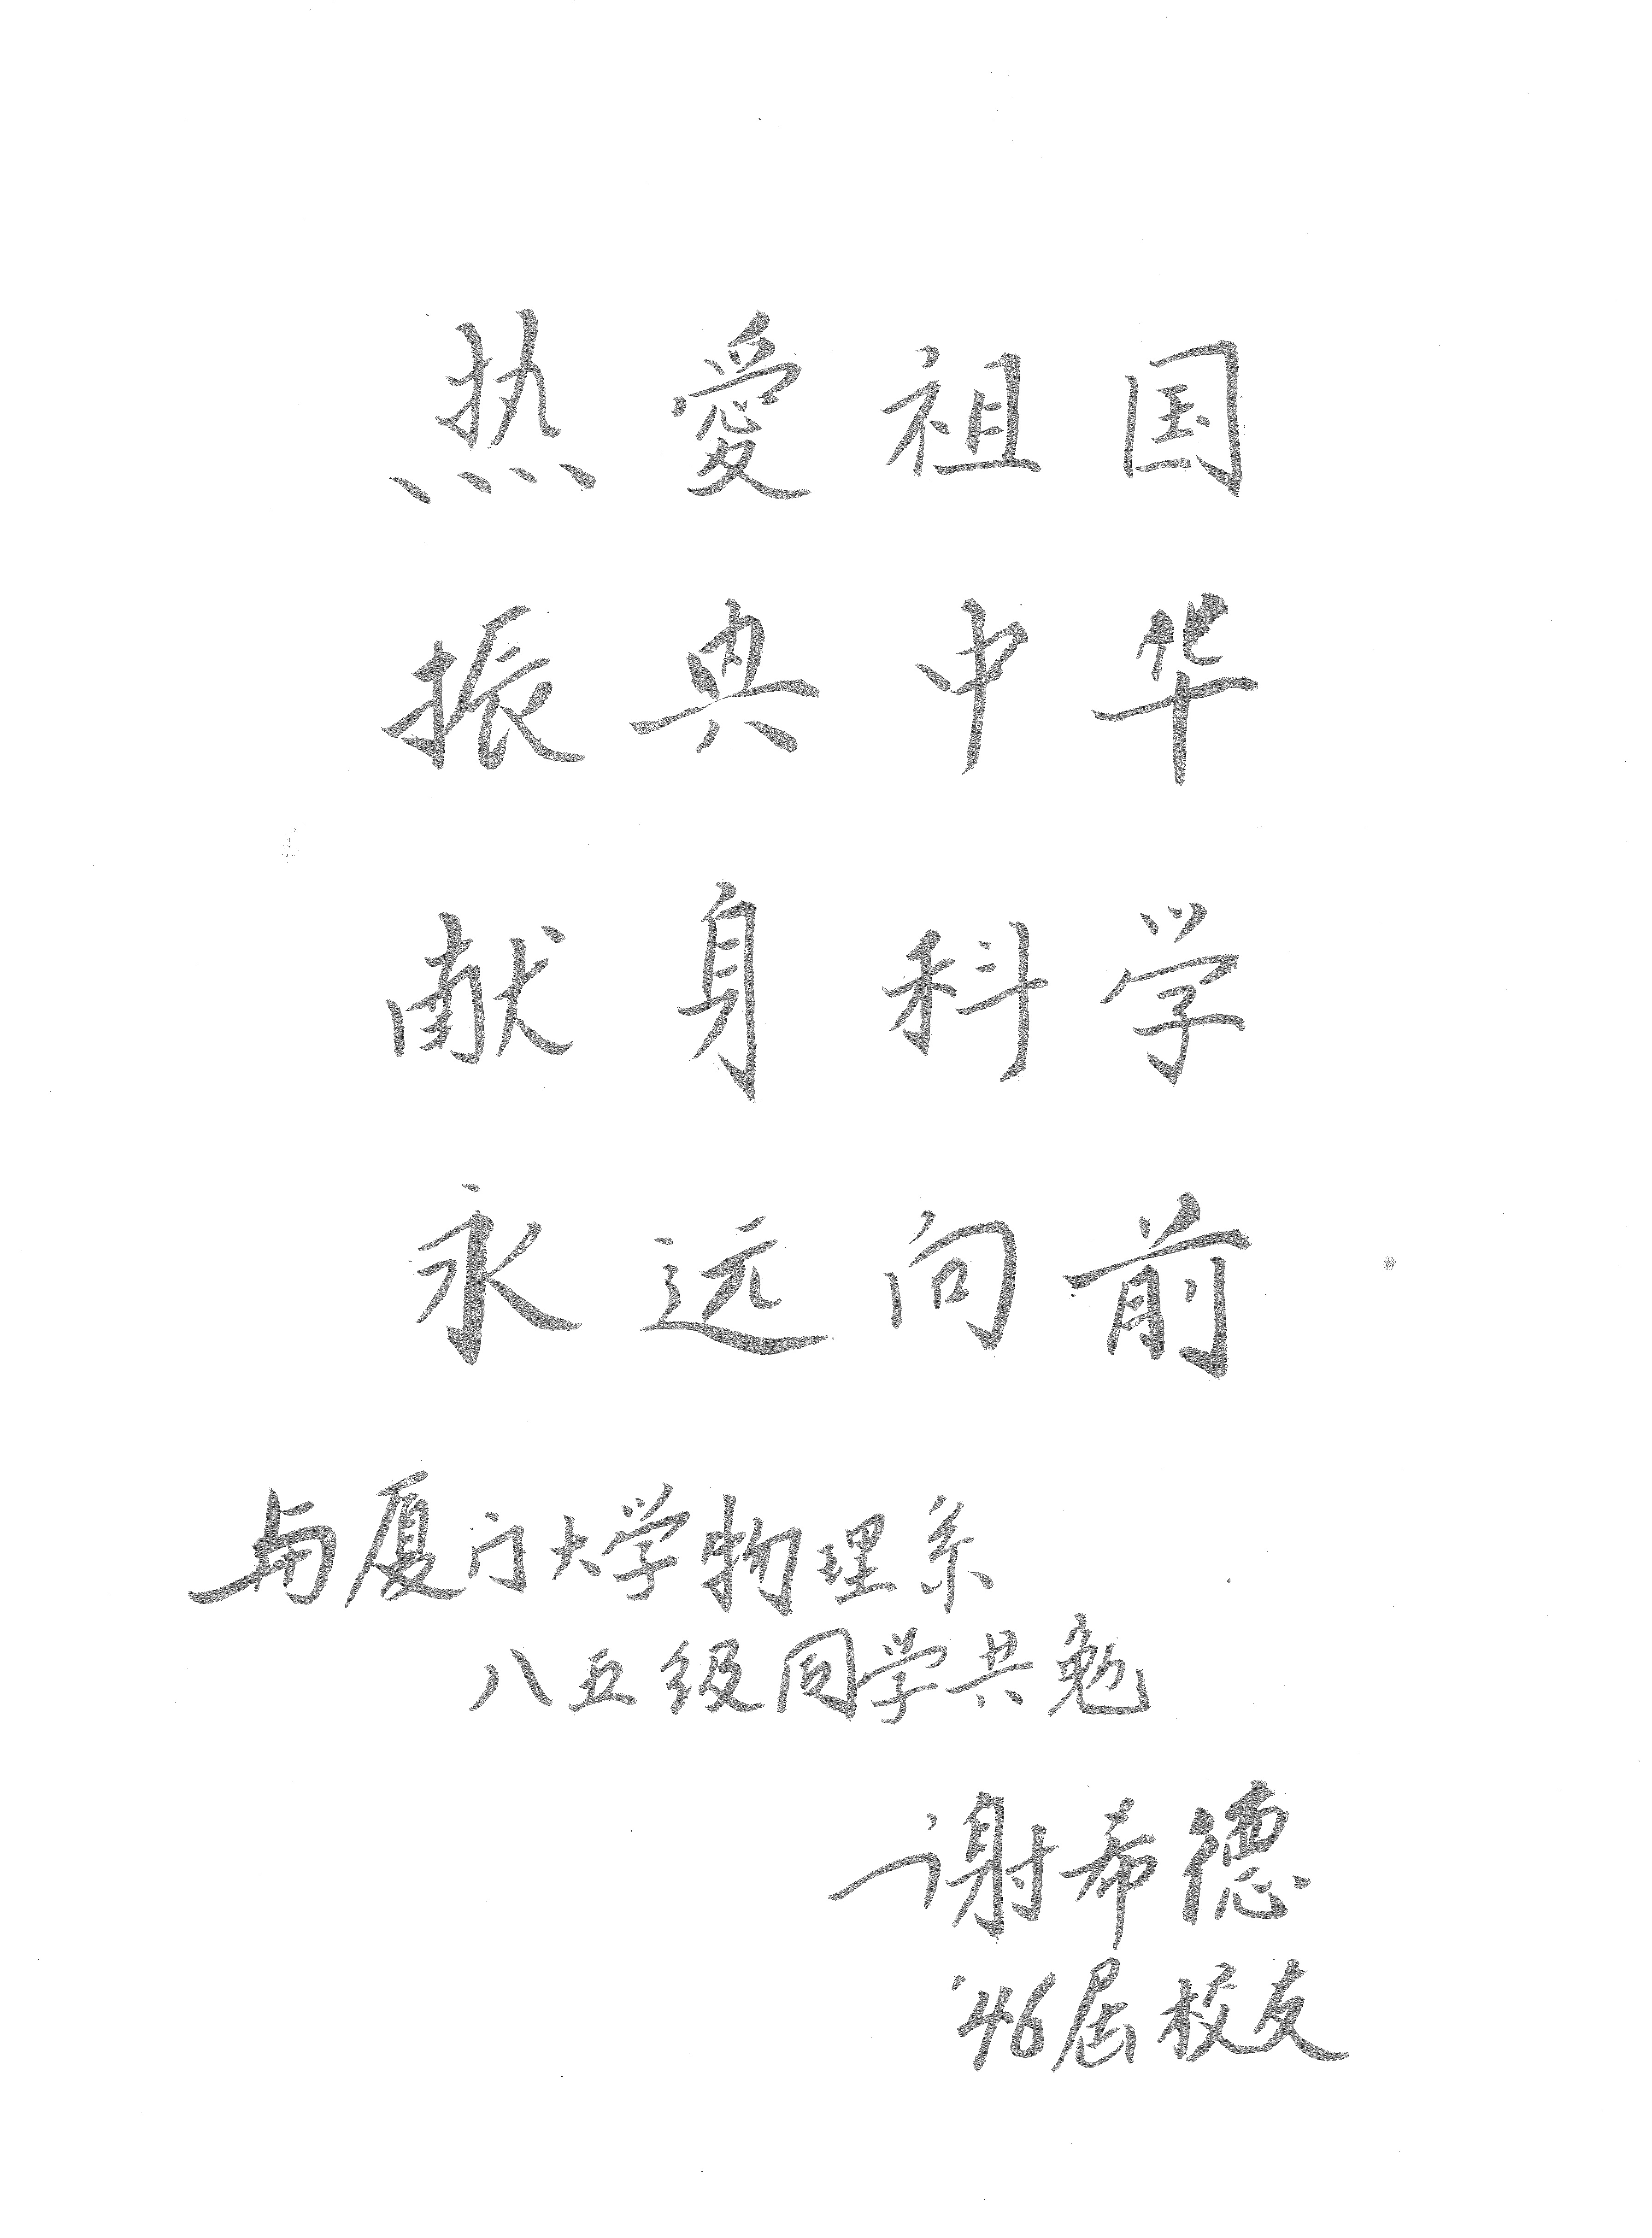 热愛祖国
振兴中华
献身科学
永远向前
与厦门大学物理系
八五级同学共勉
谢希德
'46届校友